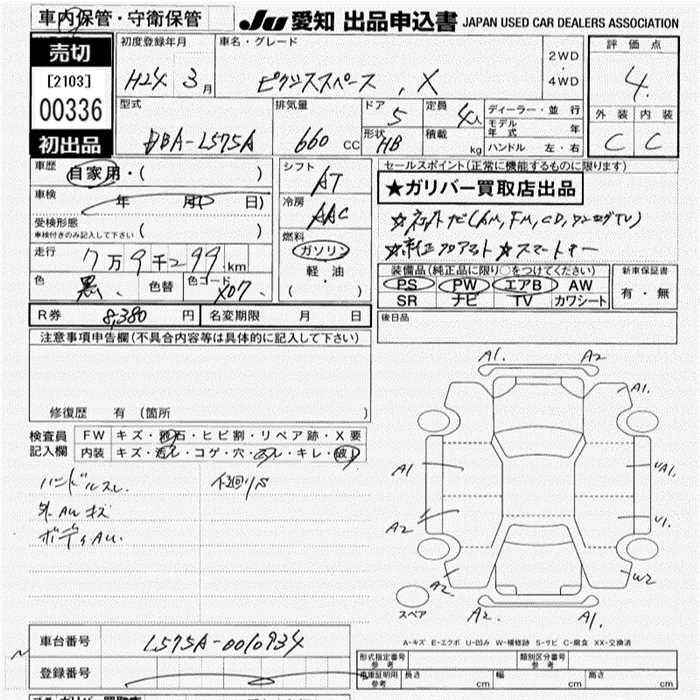 車内保管・守衛保管
JU 愛知 出品申込書 JAPAN USED CAR DEALERS ASSOCIATION
売切
[2103]
00336
初出品
初度登録年月
H24 3月
車名・グレード
ピクシススペース、X
2WD
・
4WD
評価点
4.
外装 内装
C C
型式
DBA-L575A
排気量
660 cc
ドア
5
形状
HB
定員
4人
積載
kg
ディーラー・並行
モデル年式 年
ハンドル 左・右
車歴
自家用・( )
車検
年 月( 日)
受検形態
車検付きのみ記入して下さい ( )
走行
7万9千299km
色
黒、
色替
色コード
X07、
シフト
AT
冷房
AAC
燃料
ガソリン
軽・油
( )
セールスポイント(正常に機能するものに限ります)
★ガリバー買取店出品
☆純正フロアマット ☆スマートキー
装備品(純正品に限り○をつけてください)
PS PW エアB AW
SR ナビ TV カワシート
新車保証書
有・無
R券 8,380 円
名変期限 月 日
後日品
注意事項申告欄(不具合内容等は具体的に記入して下さい)
修復歴 有 (箇所 )
検査員
記入欄
FW キズ・飛石・ヒビ割・リペア跡・X要
内装 キズ・汚レ・コゲ・穴・スレ・キレ・破レ
ハンドルスレ
外AUキズ
ボディAU.
下廻りS
A1. A2
A1.
A1
UA1.
A2
U1.
A2.
W2
スペア
A2. A1.
A-キズ E-エクボ U-凹み W-補修跡 S-サビ C-腐食 XX-交換済
車台番号
L575A-0010934
登録番号
形式指定番号
参考
類別区分番号
参考
車庫証明用
参考
長さ cm 幅 cm 高さ cm
ガリバー買取店